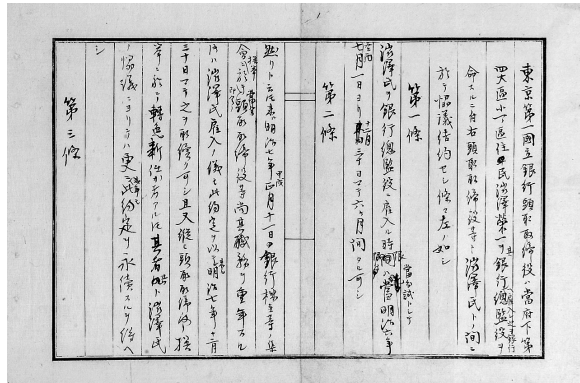 東京第一國立銀行頭取取締役ハ當府下第
四大區小丁區住民澁澤榮一ヲ銀行總監役ヲ
命スルニ付右頭取取締役等ト澁澤氏トノ間ニ
於テ協議結約セシ條々左ノ如シ
第一條
澁澤氏ヲ銀行總監役ニ雇入ル時限ハ當明治六年
七月一日ヨリ十二月三十日マテ六ヶ月間タルヘシ
第二條
然リト云ヘ共明治七年正月十一日ノ銀行株主等ノ集
會ニ於テ頭取取締役等尚其職務ヲ重年スル
時ハ澁澤氏雇入ノ儀モ此約定ヲ以テ明治七年十二月
三十日マテ之ヲ永續スヘシ且又縦令頭取取締役ノ撰
擧ニ於テ轉免新任ノ者アルモ其者ト澁澤氏
ノ協議ニヨリテハ更ニ此約定ヲ永續スルヲ得ヘ
シ
第三條